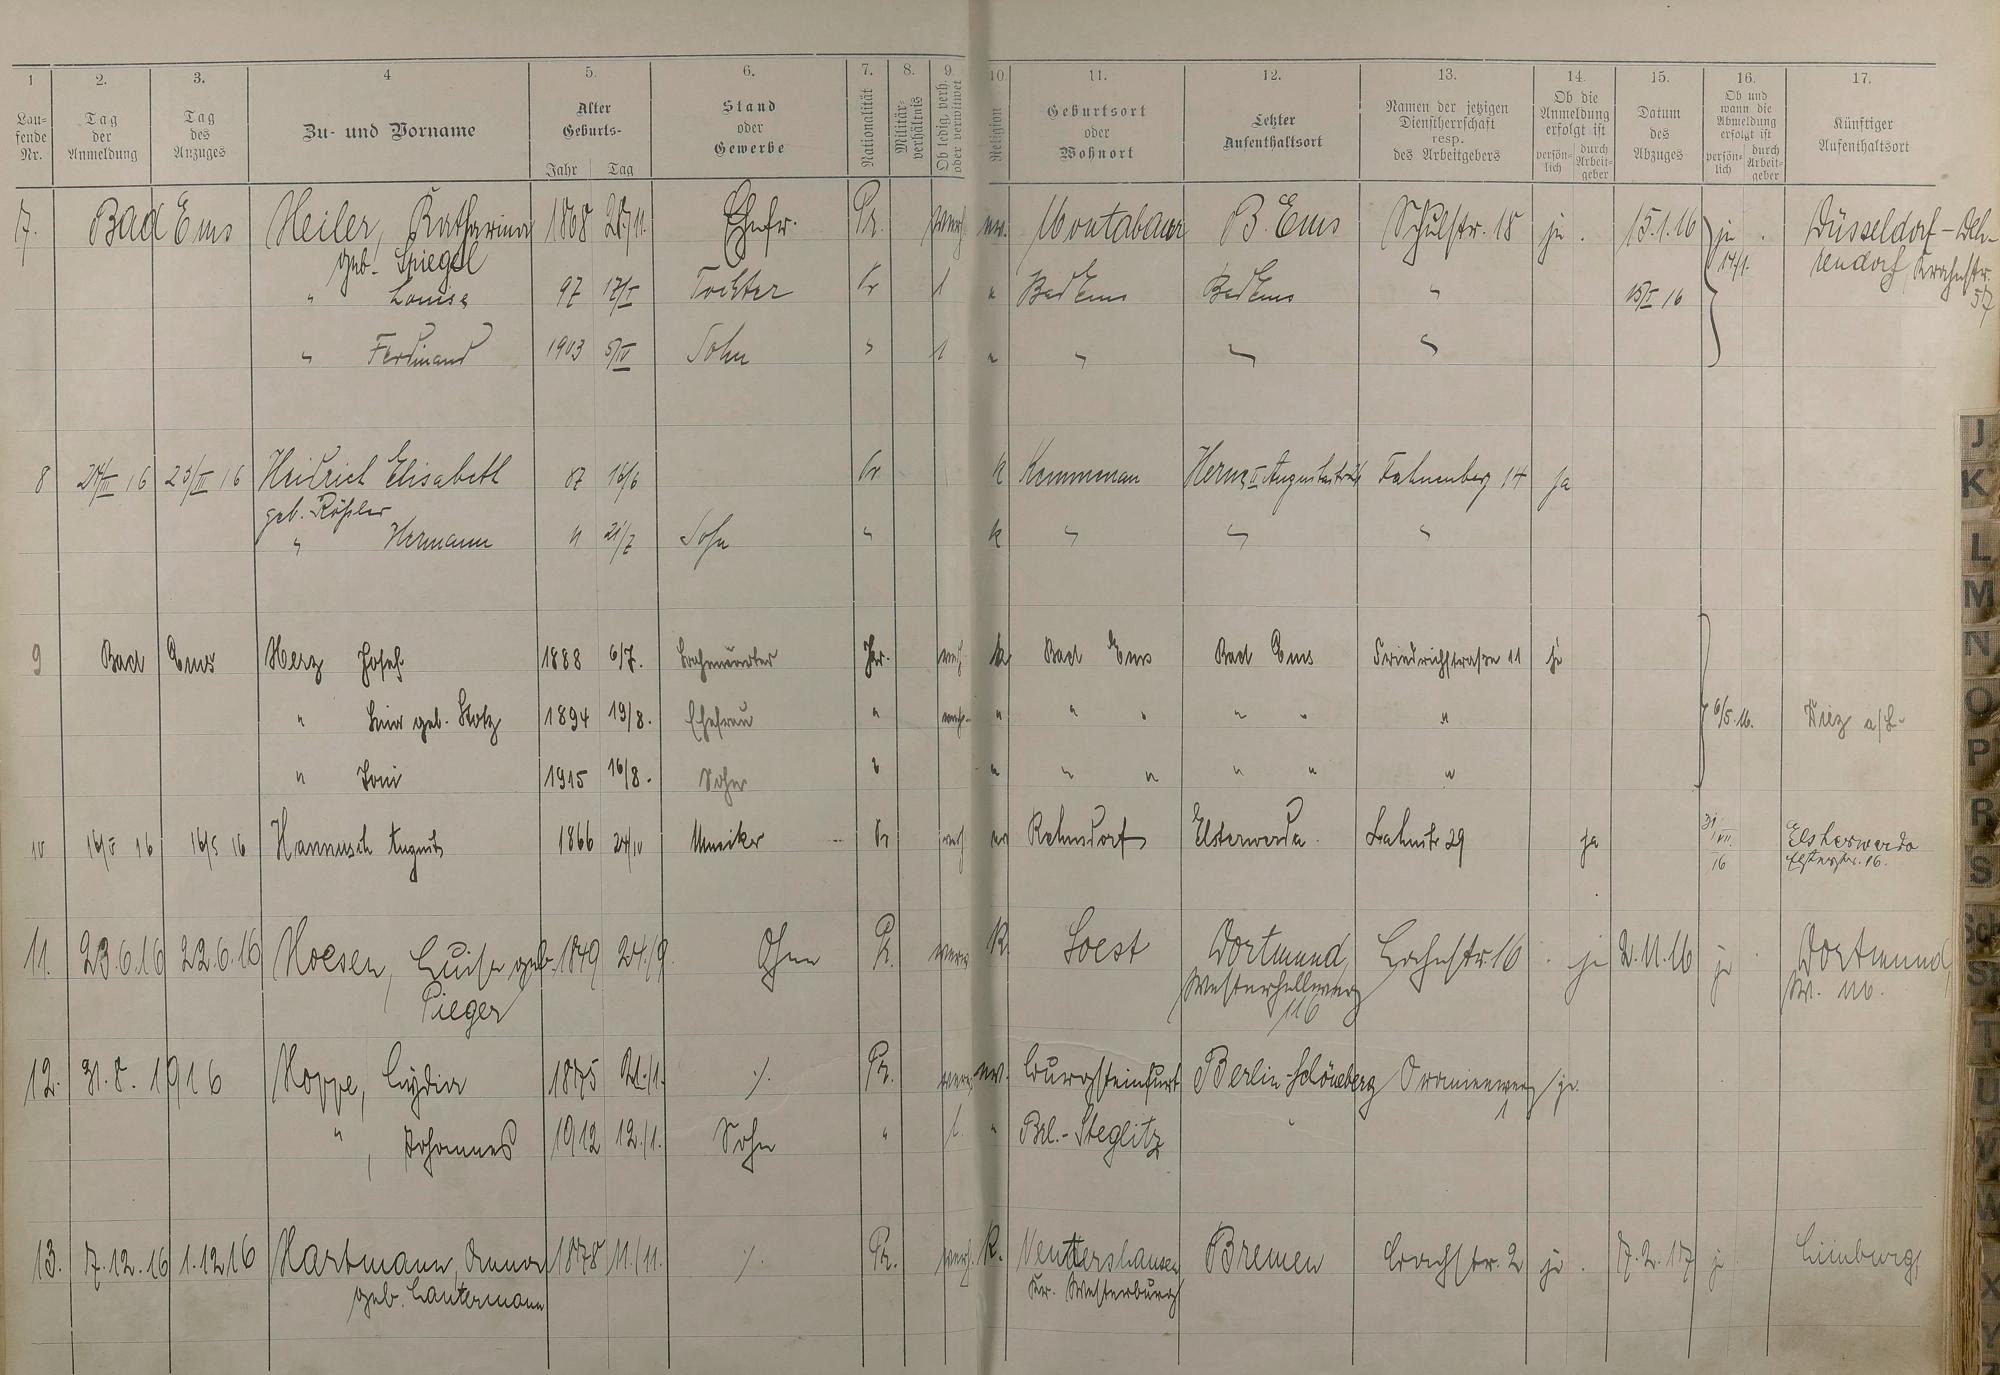 1 2. 3. 4 5. 6. 7. 8. 9. 10. 11. 12. 13. 14. 15. 16. 17.
Lau-
fende
Nr.
Tag
der
Anmeldung
Tag
des
Anzuges
Zu- und Vorname
Alter
Geburts-
Jahr Tag
Stand
oder
Gewerbe
Nationalität
Militär-
verhältnis
Ob ledig, verh.
oder verwitwet
Religion
Geburtsort
oder
Wohnort
Letzter
Aufenthaltsort
Namen der jetzigen
Dienstherrschaft
resp.
des Arbeitgebers
Ob die
Anmeldung
erfolgt ist
persön-
lich
durch
Arbeit-
geber
Datum
des
Abzuges
Ob und
wann die
Abmeldung
erfolgt ist
persön-
lich
durch
Arbeit-
geber
Künftiger
Aufenthaltsort
7. Bad Ems Heiler, Katharina 1868 28/11. Ehefr. Pr. verh. ev. Montabaur B. Ems Schulstr. 18 ja . 15.1.16 ja . Düsseldorf-
geb. Spiegel 14/1. Krahnstr.
" Louise 97 17/I Tochter Pr l " Bad Ems Bad Ems " 15/I 16 57
" Ferdinand 1903 5/IV Sohn " l " " " "
8 24/III 16 23/III 16 Heidrich Elisabeth 87 16/6 Pr k Kemmenau Fahnenberg 14 ja
geb. Rößler
" Hermann 11 21/7 Sohn " k " " "
9 Bad Ems Herz Josef 1888 6/7. Pr. verh k Bad Ems Bad Ems Friedrichstraße 11 ja
" geb. Stotz 1894 19/8. Ehefrau " verh. " " " " " " 6/5.16. Diez a/L.
" Toni 1915 16/8. Sohn " " " " " " "
10 16/5 16 16/5 16 Hannusch August 1866 24/10 Musiker Pr verh ev Rehnsdorf Elsterwerda. Lahnstr 29 ja 31/VII. 16 Elsterwerda
Elsterstr. 16.
11. 23.6.16 22.6.16 Hoesen, Luise geb. 1849 24./9. Ohne Pr. verw K. Soest Dortmund, Lahnstr. 16 . ja 2.11.16 ja . Dortmund,
Pieger Westerhellweg W. 116.
116
12. 31.8.1916 Hoppe, Lydia 1875 21./1. ./. Pr. ev. Burgsteinfurt Berlin-Schöneberg Oranienweg ja.
1
" , Johannes 1912 12./1. Sohn " l. " Brl.-Steglitz "
13. 7.12.16 1.12.16 Hartmann, Anna 1878 11./11. ./. Pr. verh. K. Bremen Bachstr. 2 ja . 7.2.17 ja Limburg
geb. Lautermann Kr. Westerburg
J
K
L
M
N
O
P
R
S
Sch
St
T
U
V
W
X
Y
Z